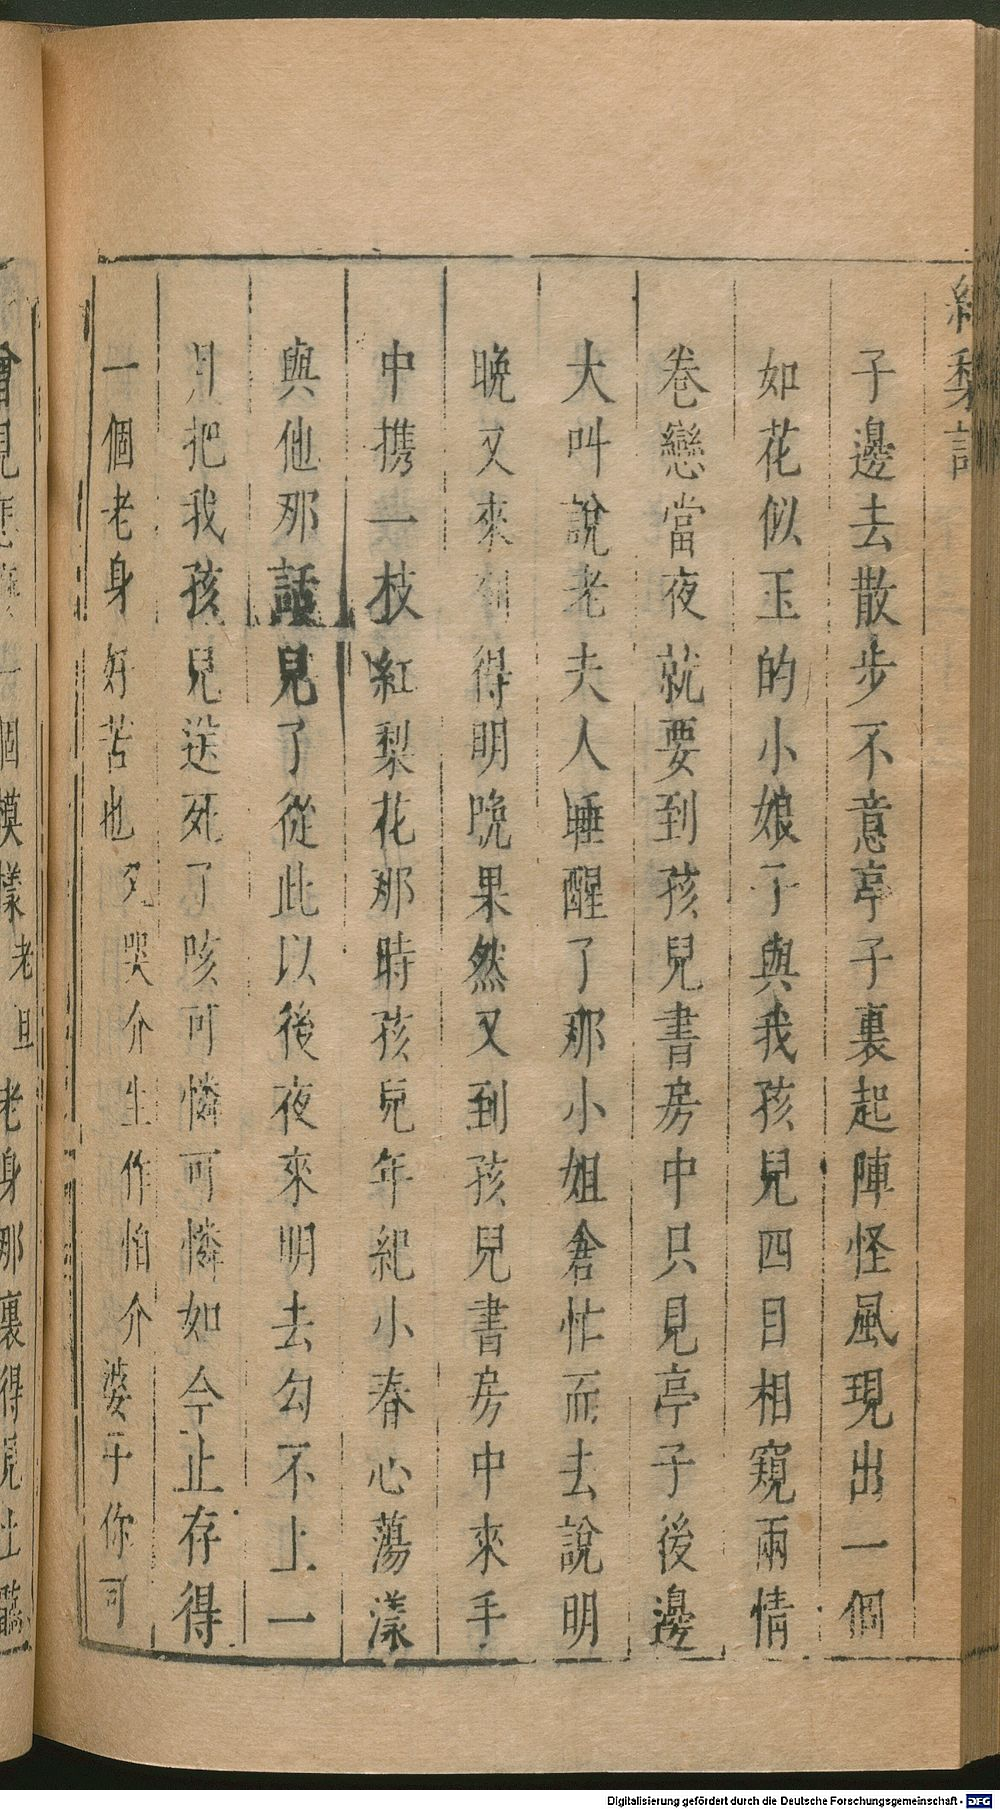 紅梨記
子邊去散步不意亭子裏起陣怪風現出一個
如花似玉的小娘子與我孩兒四目相窺兩情
卷戀當夜就要到孩兒書房中只見亭子後邊
大叫說老夫人睡醒了那小姐倉忙而去說明
晚又來到得明晚果然又到孩兒書房中來手
中携一枝紅梨花那時孩兒年紀小春心蕩漾
與他那話兒了從此以後夜來明去勾不上一
月把我孩兒送死了咳可憐可憐如今止存得
一個老身好苦也夕哭介生作怕介婆子你可
曾見怎麼一個模樣老旦老身那裏得見
Digitalisierung gefördert durch die Deutsche Forschungsgemeinschaft - DFG